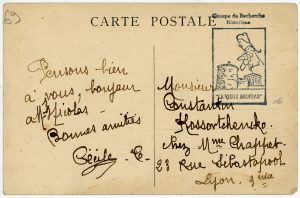 69
CARTE POSTALE
Groupe de Recherche
Historique
Pensons bien
à vous, bonjour
à Nicolas.
Bonnes amitiés
Cécile. C.
Monsieur
Constantin
Kossortchenko
chez Mme Chappet
23 Rue Sébastopol
Lyon. 3ème